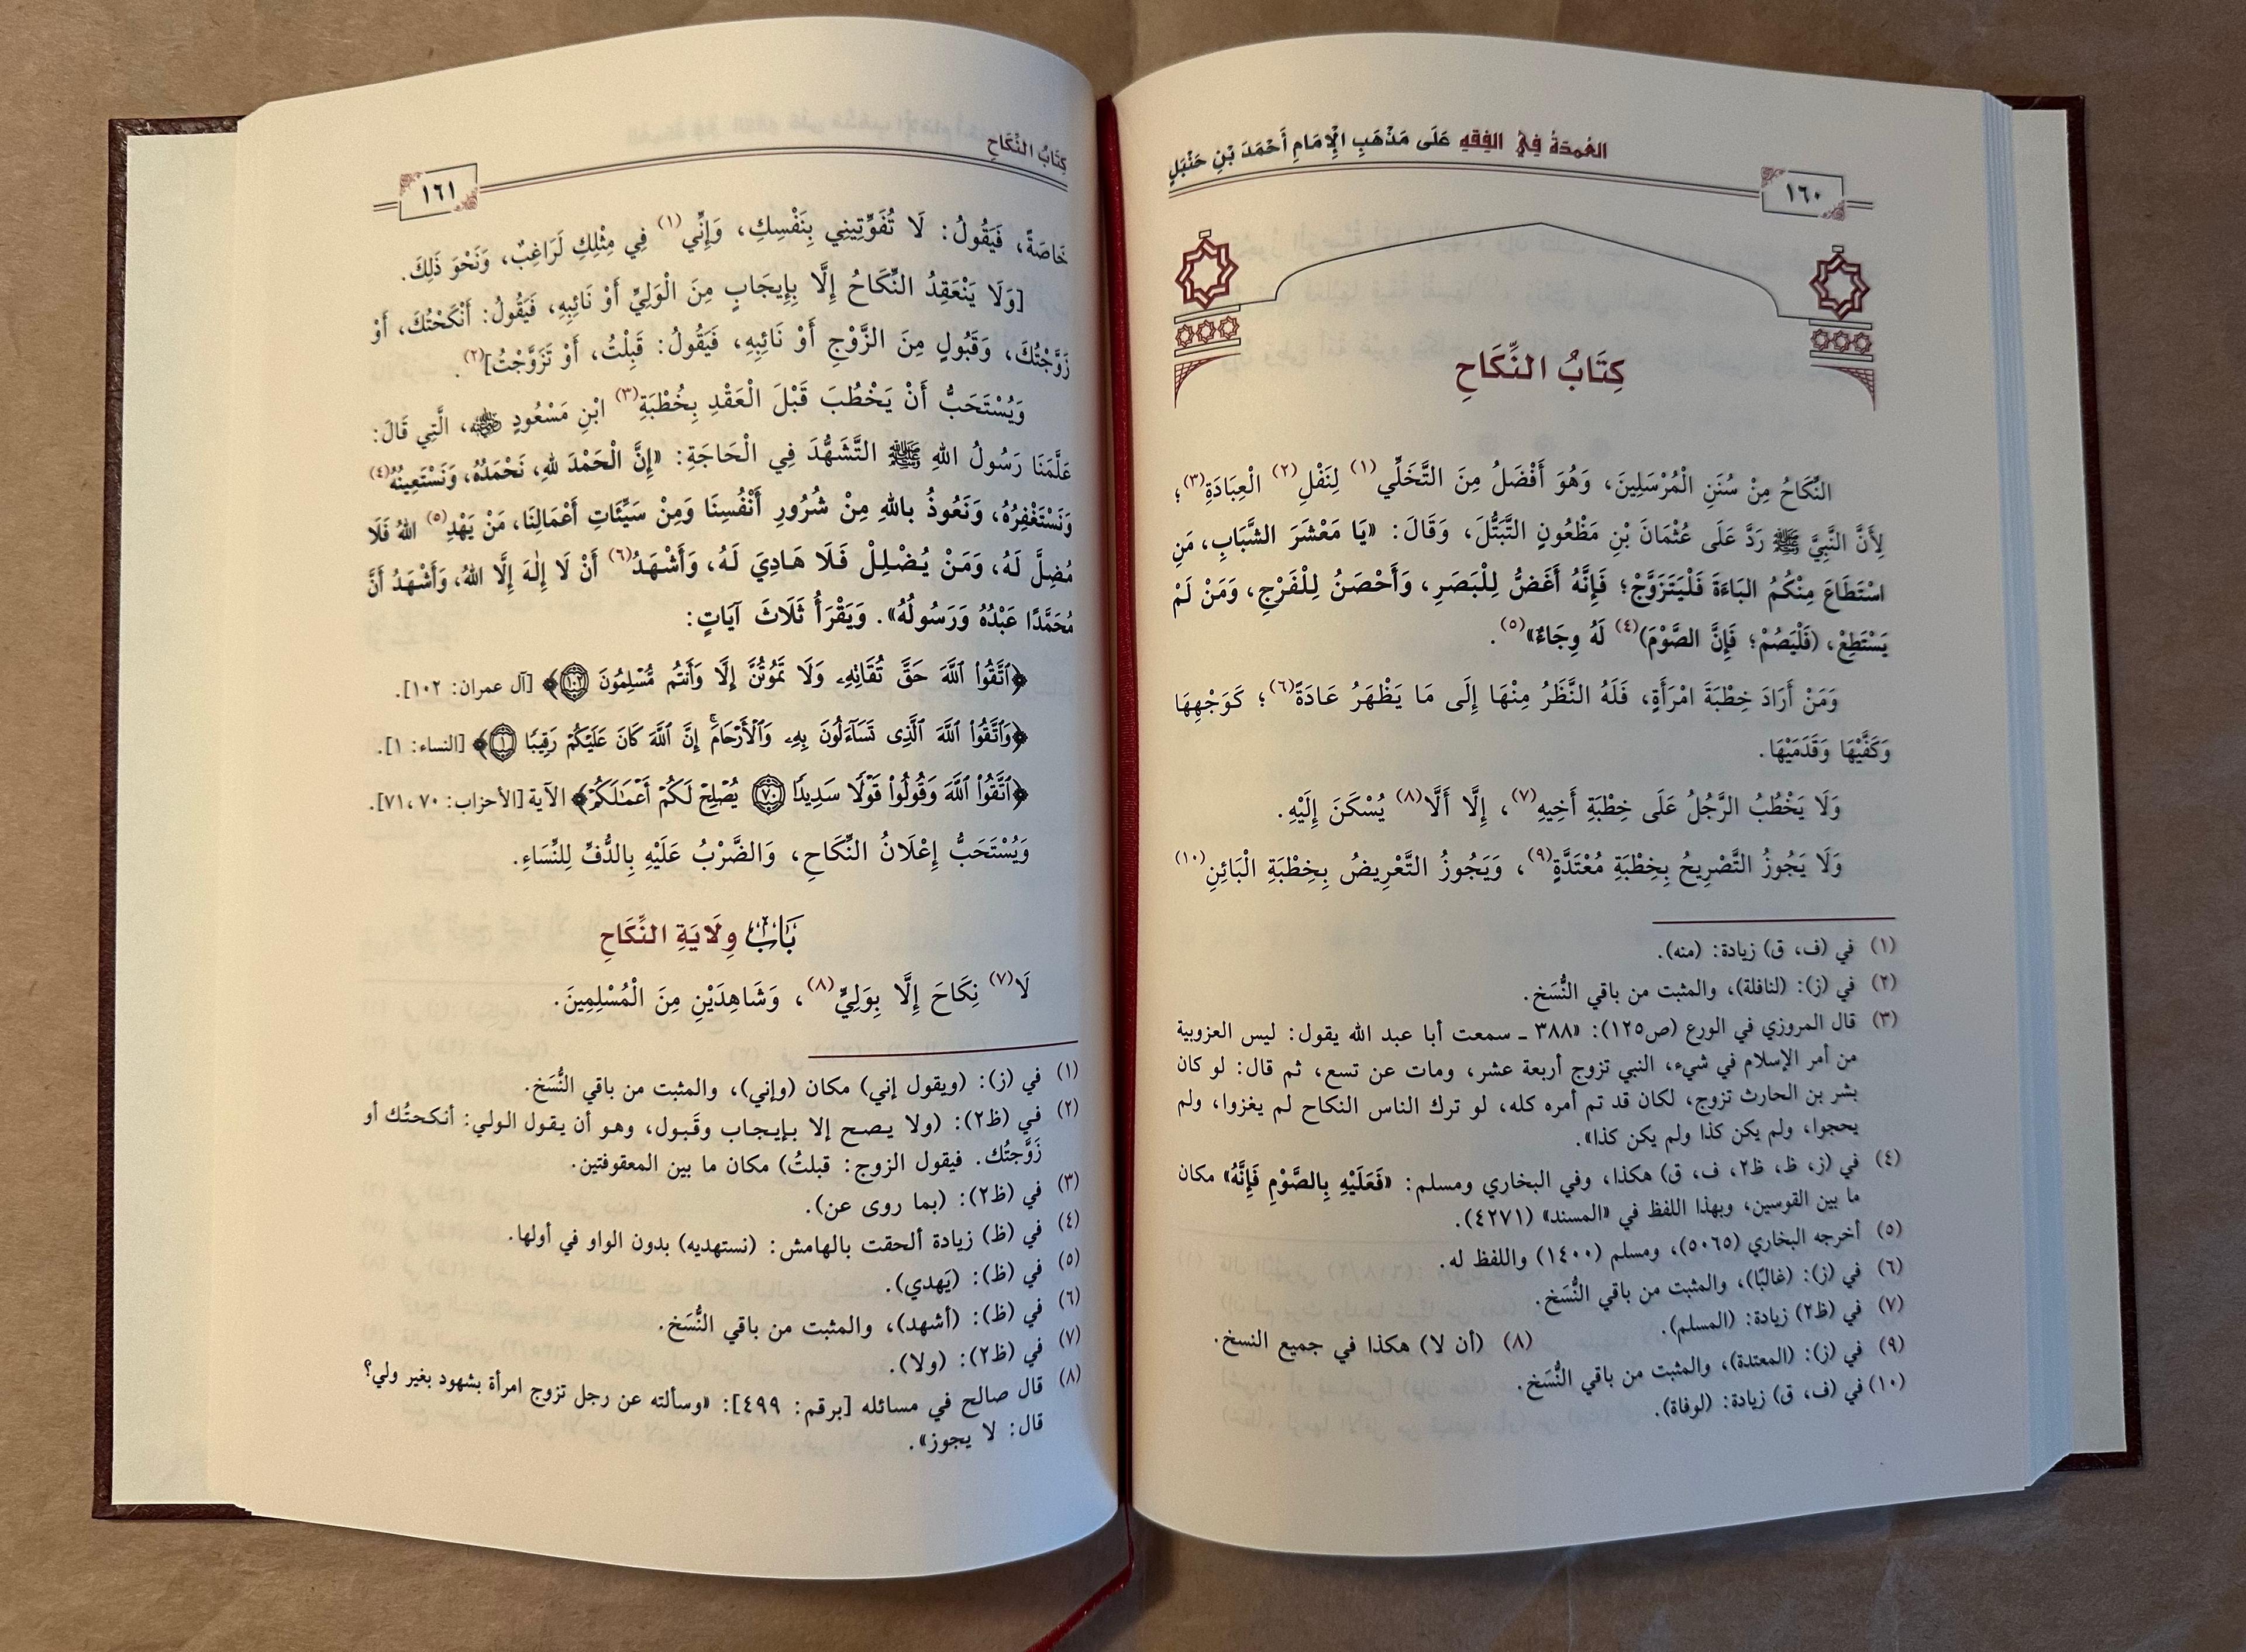 العُمدَةُ فِي الفِقهِ عَلَى مَذْهَبِ الإِمَامِ أَحْمَدَ بْنِ حَنْبَلٍ
١٦٠
كِتَابُ النِّكَاحِ
النِّكَاحُ مِنْ سُنَنِ الْمُرْسَلِينَ، وَهُوَ أَفْضَلُ مِنَ التَّخَلِّي(١) لِنَفْلِ(٢) الْعِبَادَةِ(٣)؛
لِأَنَّ النَّبِيَّ ﷺ رَدَّ عَلَى عُثْمَانَ بْنِ مَظْعُونٍ التَّبَتُّلَ، وَقَالَ: «يَا مَعْشَرَ الشَّبَابِ، مَنِ
اسْتَطَاعَ مِنْكُمُ البَاءَةَ فَلْيَتَزَوَّجْ؛ فَإِنَّهُ أَغَضُّ لِلْبَصَرِ، وَأَحْصَنُ لِلْفَرْجِ، وَمَنْ لَمْ
يَسْتَطِعْ، (فَلْيَصُمْ؛ فَإِنَّ الصَّوْمَ)(٤) لَهُ وِجَاءٌ»(٥).
وَمَنْ أَرَادَ خِطْبَةَ امْرَأَةٍ، فَلَهُ النَّظَرُ مِنْهَا إِلَى مَا يَظْهَرُ عَادَةً(٦)؛ كَوَجْهِهَا
وَكَفَّيْهَا وَقَدَمَيْهَا.
وَلَا يَخْطُبُ الرَّجُلُ عَلَى خِطْبَةِ أَخِيهِ(٧)، إِلَّا أَلَّا(٨) يُسْكَنَ إِلَيْهِ.
وَلَا يَجُوزُ التَّصْرِيحُ بِخِطْبَةِ مُعْتَدَّةٍ(٩)، وَيَجُوزُ التَّعْرِيضُ بِخِطْبَةِ الْبَائِنِ(١٠)
(١) في (ف، ق) زيادة: (منه).
(٢) في (ز): (لنافلة)، والمثبت من باقي النُّسَخ.
(٣) قال المروزي في الورع (ص١٢٥): «٣٨٨ ـ سمعت أبا عبد الله يقول: ليس العزوبية
من أمر الإسلام في شيء، النبي تزوج أربعة عشر، ومات عن تسع، ثم قال: لو كان
بشر بن الحارث تزوج، لكان قد تم أمره كله، لو ترك الناس النكاح لم يغزوا، ولم
يحجوا، ولم يكن كذا ولم يكن كذا».
(٤) في (ز، ظ، ظ٢، ف، ق) هكذا، وفي البخاري ومسلم: «فَعَلَيْهِ بِالصَّوْمِ فَإِنَّهُ» مكان
ما بين القوسين، وبهذا اللفظ في «المسند» (٤٢٧١).
(٥) أخرجه البخاري (٥٠٦٥)، ومسلم (١٤٠٠) واللفظ له.
(٦) في (ز): (غالبًا)، والمثبت من باقي النُّسَخ.
(٧) في (ظ٢) زيادة: (المسلم).
(٨) (أن لا) هكذا في جميع النسخ.
(٩) في (ز): (المعتدة)، والمثبت من باقي النُّسَخ.
(١٠) في (ف، ق) زيادة: (لوفاة).
كِتَابُ النِّكَاحِ
١٦١
خَاصَةً، فَيَقُولُ: لَا تُفَوِّتِينِي بِنَفْسِكِ، وَإِنِّي(١) فِي مِثْلِكِ لَرَاغِبٌ، وَنَحْوَ ذَلِكَ.
[وَلَا يَنْعَقِدُ النِّكَاحُ إِلَّا بِإِيجَابٍ مِنَ الْوَلِيِّ أَوْ نَائِبِهِ، فَيَقُولُ: أَنْكَحْتُكَ، أَوْ
زَوَّجْتُكَ، وَقَبُولٍ مِنَ الزَّوْجِ أَوْ نَائِبِهِ، فَيَقُولُ: قَبِلْتُ، أَوْ تَزَوَّجْتُ](٢).
وَيُسْتَحَبُّ أَنْ يَخْطُبَ قَبْلَ الْعَقْدِ بِخُطْبَةِ(٣) ابْنِ مَسْعُودٍ رضي الله عنه، الَّتِي قَالَ:
عَلَّمَنَا رَسُولُ اللهِ ﷺ التَّشَهُّدَ فِي الْحَاجَةِ: «إِنَّ الْحَمْدَ لِلهِ، نَحْمَدُهُ، وَنَسْتَعِينُهُ(٤)
وَنَسْتَغْفِرُهُ، وَنَعُوذُ بِاللهِ مِنْ شُرُورِ أَنْفُسِنَا وَمِنْ سَيِّئَاتِ أَعْمَالِنَا، مَنْ يَهْدِ(٥) اللهُ فَلَا
مُضِلَّ لَهُ، وَمَنْ يُضْلِلْ فَلَا هَادِيَ لَهُ، وَأَشْهَدُ(٦) أَنْ لَا إِلٰهَ إِلَّا اللهُ، وَأَشْهَدُ أَنَّ
مُحَمَّدًا عَبْدُهُ وَرَسُولُهُ». وَيَقْرَأُ ثَلَاثَ آيَاتٍ:
﴿ٱتَّقُوا۟ ٱللَّهَ حَقَّ تُقَاتِهِۦ وَلَا تَمُوتُنَّ إِلَّا وَأَنتُم مُّسْلِمُونَ ١٠٢﴾ [آل عمران: ١٠٢].
﴿وَٱتَّقُوا۟ ٱللَّهَ ٱلَّذِى تَسَآءَلُونَ بِهِۦ وَٱلْأَرْحَامَ ۚ إِنَّ ٱللَّهَ كَانَ عَلَيْكُمْ رَقِيبًا ١﴾ [النساء: ١].
﴿ٱتَّقُوا۟ ٱللَّهَ وَقُولُوا۟ قَوْلًا سَدِيدًا ٧٠ يُصْلِحْ لَكُمْ أَعْمَـٰلَكُمْ﴾ الآية [الأحزاب: ٧٠، ٧١].
وَيُسْتَحَبُّ إِعْلَانُ النِّكَاحِ، وَالضَّرْبُ عَلَيْهِ بِالدُّفِّ لِلنِّسَاءِ.
بَابُ وِلَايَةِ النِّكَاحِ
لَا(٧) نِكَاحَ إِلَّا بِوَلِيٍّ(٨)، وَشَاهِدَيْنِ مِنَ الْمُسْلِمِينَ.
(١) في (ز): (ويقول إني) مكان (وإني)، والمثبت من باقي النُّسَخ.
(٢) في (ظ٢): (ولا يصح إلا بإيجاب وقَبول، وهو أن يقول الولي: أنكحتُك أو
زَوَّجتُك. فيقول الزوج: قبلتُ) مكان ما بين المعقوفتين.
(٣) في (ظ٢): (بما روى عن).
(٤) في (ظ) زيادة ألحقت بالهامش: (نستهديه) بدون الواو في أولها.
(٥) في (ظ): (يَهدي).
(٦) في (ظ): (أشهد)، والمثبت من باقي النُّسَخ.
(٧) في (ظ٢): (ولا).
(٨) قال صالح في مسائله [برقم: ٤٩٩]: «وسألته عن رجل تزوج امرأة بشهود بغير ولي؟
قال: لا يجوز».